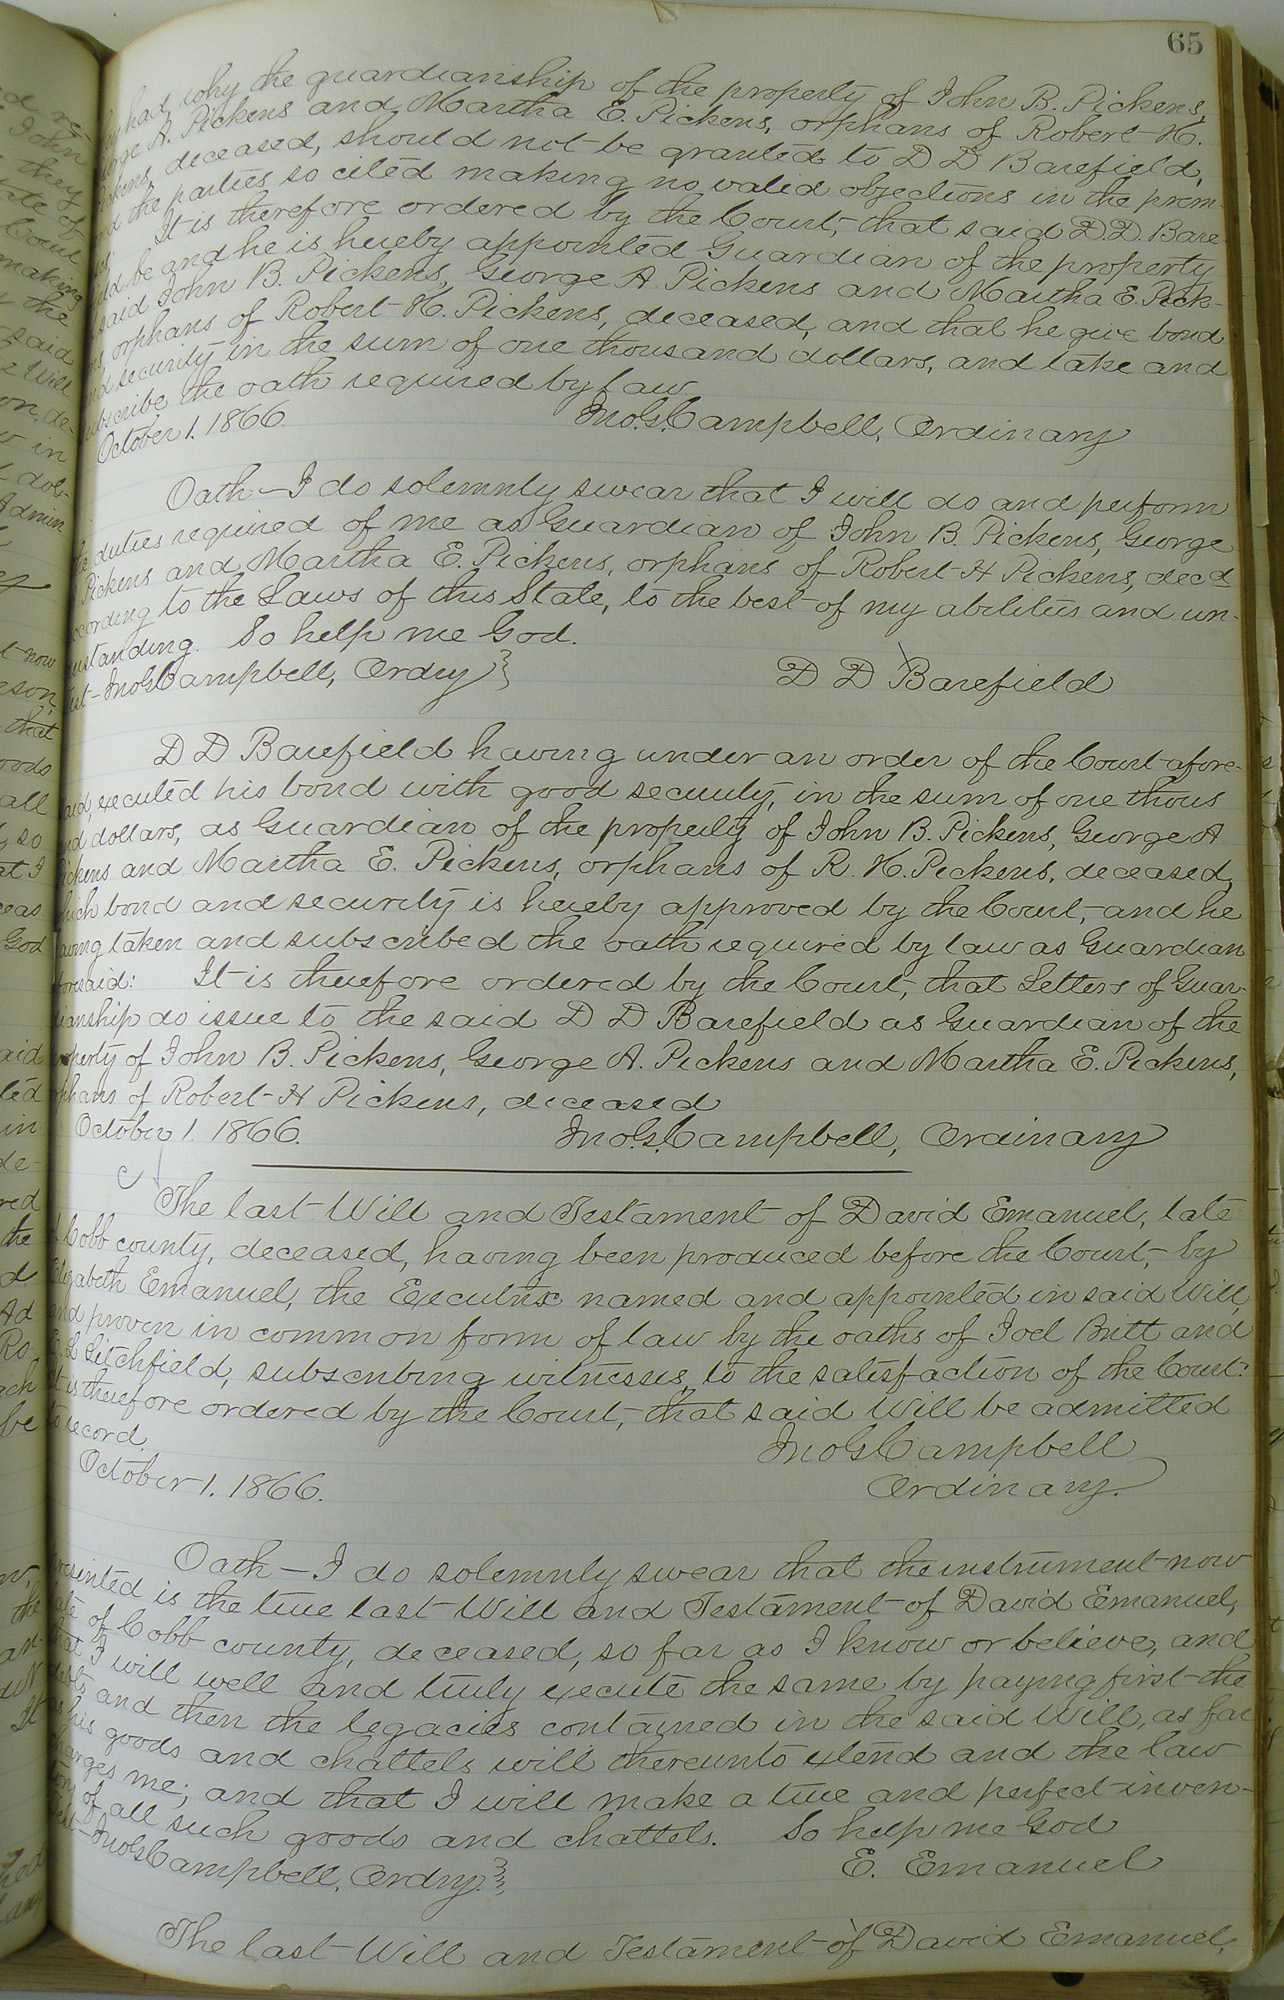 65
had, why the guardianship of the property of John B. Pickens,
A. Pickens and Martha E. Pickens, orphans of Robert H.
deceased, should not be granted to D D Barefield,
the parties so cited making no valid objections in the prem-
It is therefore ordered by the Court, that said D.D. Bare-
be and he is hereby appointed Guardian of the property
said John B. Pickens, George A Pickens and Martha E. Pick-
orphans of Robert H. Pickens, deceased, and that he give bond
security in the sum of one thousand dollars, and take and
the oath required by law.
October 1. 1866. Jno. G. Campbell, Ordinary
Oath — I do solemnly swear that I will do and perform
duties required of me as Guardian of John B. Pickens, George
Pickens and Martha E. Pickens, orphans of Robert H Pickens, decd
to the Laws of this State, to the best of my abilities and un-
So help me God.
Jno G Campbell, Ordry } D D Barefield
D D Barefield having under an order of the Court afore-
executed his bond with good security, in the sum of one thous
dollars, as Guardian of the property of John B. Pickens, George A
and Martha E. Pickens, orphans of R. H. Pickens, deceased,
bond and security is hereby approved by the Court, and he
taken and subscribed the oath required by law as Guardian
It is therefore ordered by the Court, that Letters of Guar-
do issue to the said D D Barefield as Guardian of the
of John B. Pickens, George A. Pickens and Martha E. Pickens,
of Robert H Pickens, deceased
October 1. 1866. Jno. G. Campbell, Ordinary
The last Will and Testament of David Emanuel, late
Cobb county, deceased, having been produced before the Court, by
Emanuel, the Executrix named and appointed in said Will,
proven in common form of law by the oaths of Joel Britt and
Litchfield, subscribing witnesses, to the satisfaction of the Court:
therefore ordered by the Court, that said Will be admitted
record.
October 1. 1866. Jno G Campbell
Ordinary.
Oath — I do solemnly swear that the instrument now
is the true last Will and Testament of David Emanuel,
of Cobb county, deceased, so far as I know or believe, and
I will well and truly execute the same by paying first the
and then the legacies contained in the said Will, as far
his goods and chattels will thereunto extend and the law
me; and that I will make a true and perfect inven-
of all such goods and chattels. So help me God
Jno G Campbell, Ordry. } E. Emanuel
The last Will and Testament of David Emanuel,